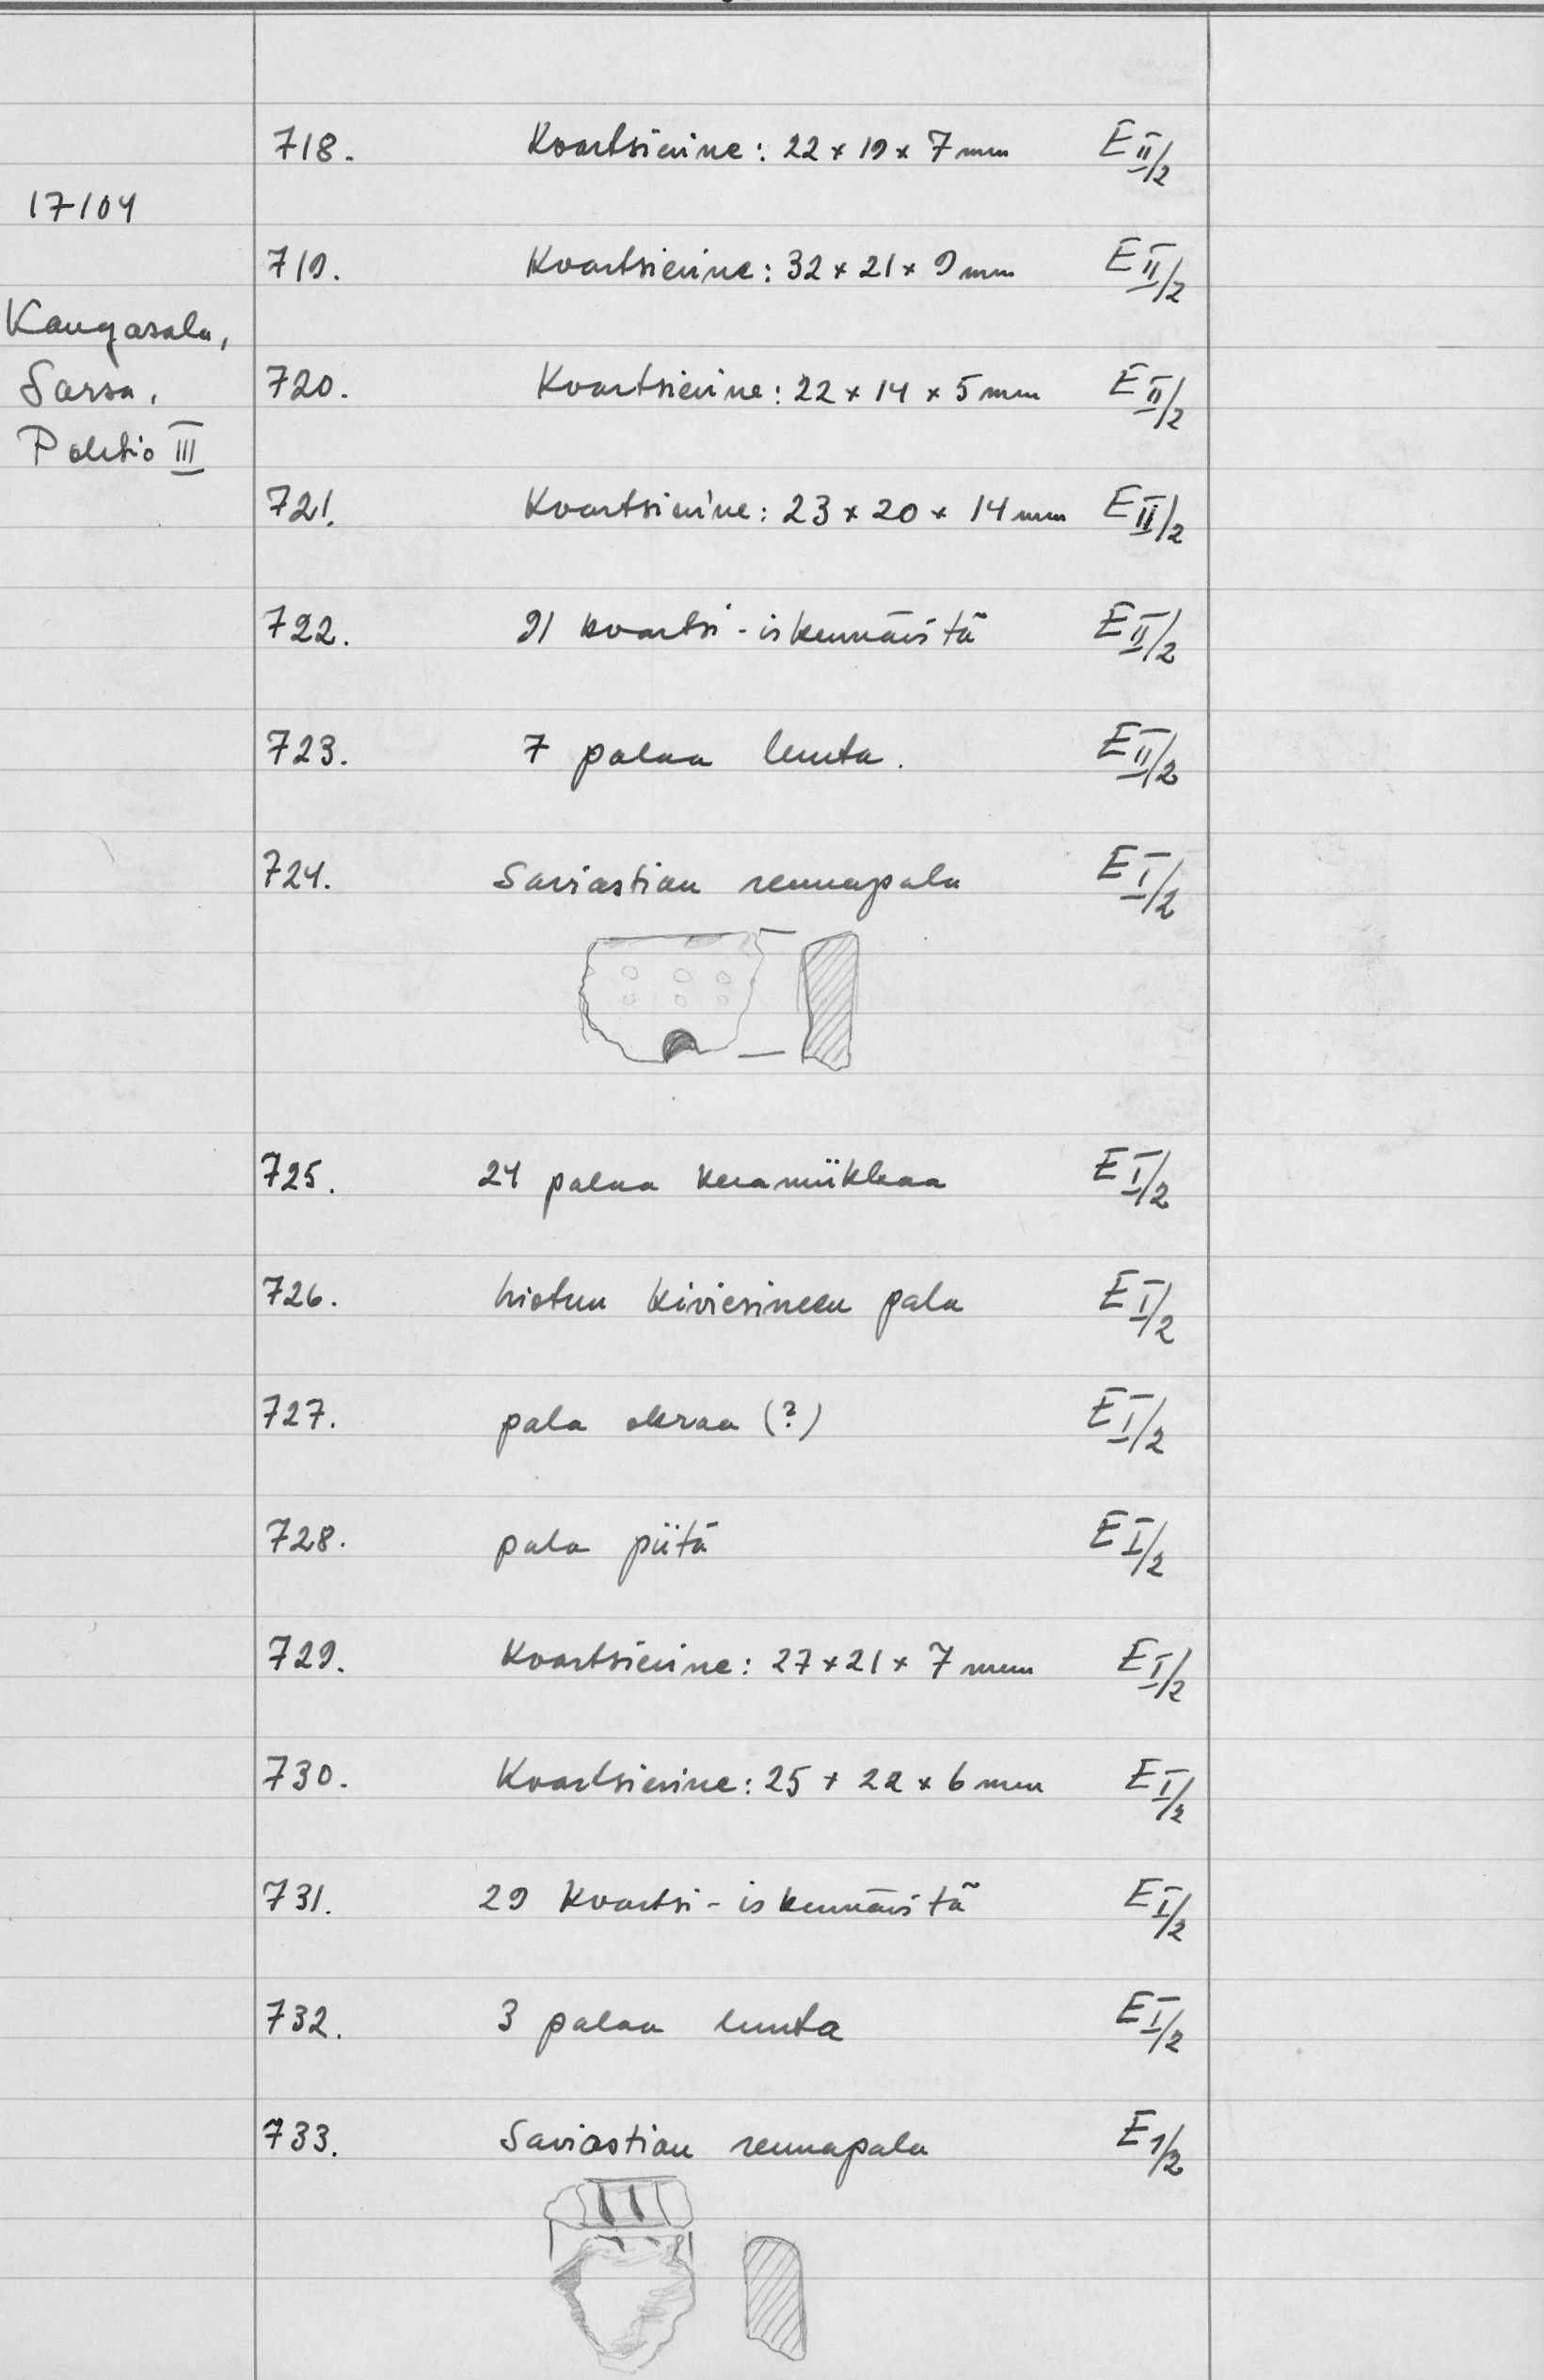 718. Kvartsiesine: 22 x 19 x 7 mm E II/2
17104
719. Kvartsiesine: 32 x 21 x 9 mm E II/2
Kangasala,
Sarsa,
Palsta III
720. Kvartsiesine: 22 x 14 x 5 mm E II/2
721. Kvartsiesine: 23 x 20 x 14 mm E II/2
722. 91 kvartsi-iskennäistä E II/2
723. 7 palaa luuta. E II/2
724. Saviastian reunapala E I/2
725. 24 palaa keramiikkaa E I/2
726. hiotun kiviesineen pala E I/2
727. pala okraa (?) E I/2
728. pala piitä E I/2
729. Kvartsiesine: 27 x 21 x 7 mm E I/2
730. Kvartsiesine: 25 x 22 x 6 mm E I/2
731. 29 Kvartsi-iskennäistä E I/2
732. 3 palaa luuta E I/2
733. Saviastian reunapala E 1/2